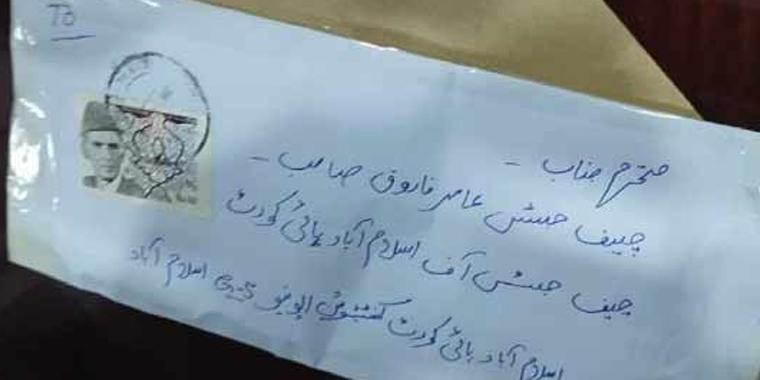 To
محترم جناب -
چیف جسٹس عامر فاروق صاحب -
چیف جسٹس آف اسلام آباد ہائی کورٹ
اسلام آباد ہائی کورٹ کنسٹیٹیوشن ایونیو G-5 اسلام آباد